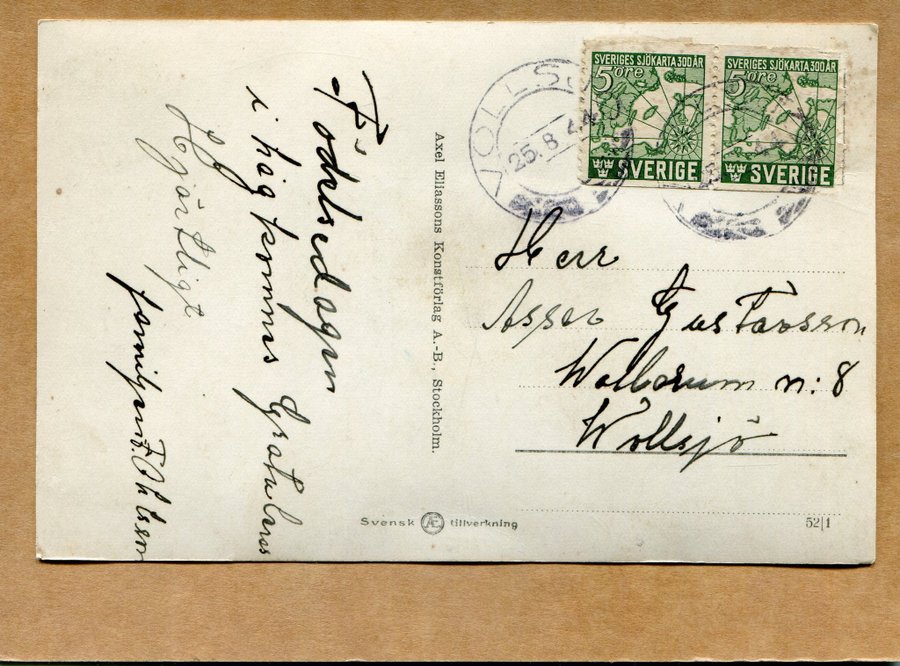 Födelsedagen
i håg komms Gratuleras
Hjärtligt
familjen
Axel Eliassons Konstförlag A.-B., Stockholm.
VOLLSJÖ
25.8.44
SVERIGES SJÖKARTA 300 ÅR
5 öre
SVERIGE
SVERIGES SJÖKARTA 300 ÅR
5 öre
SVERIGE
Herr
Asser Gustavsson
Wollarum n:8
Wollsjö
Svensk Æ tillverkning
52|1